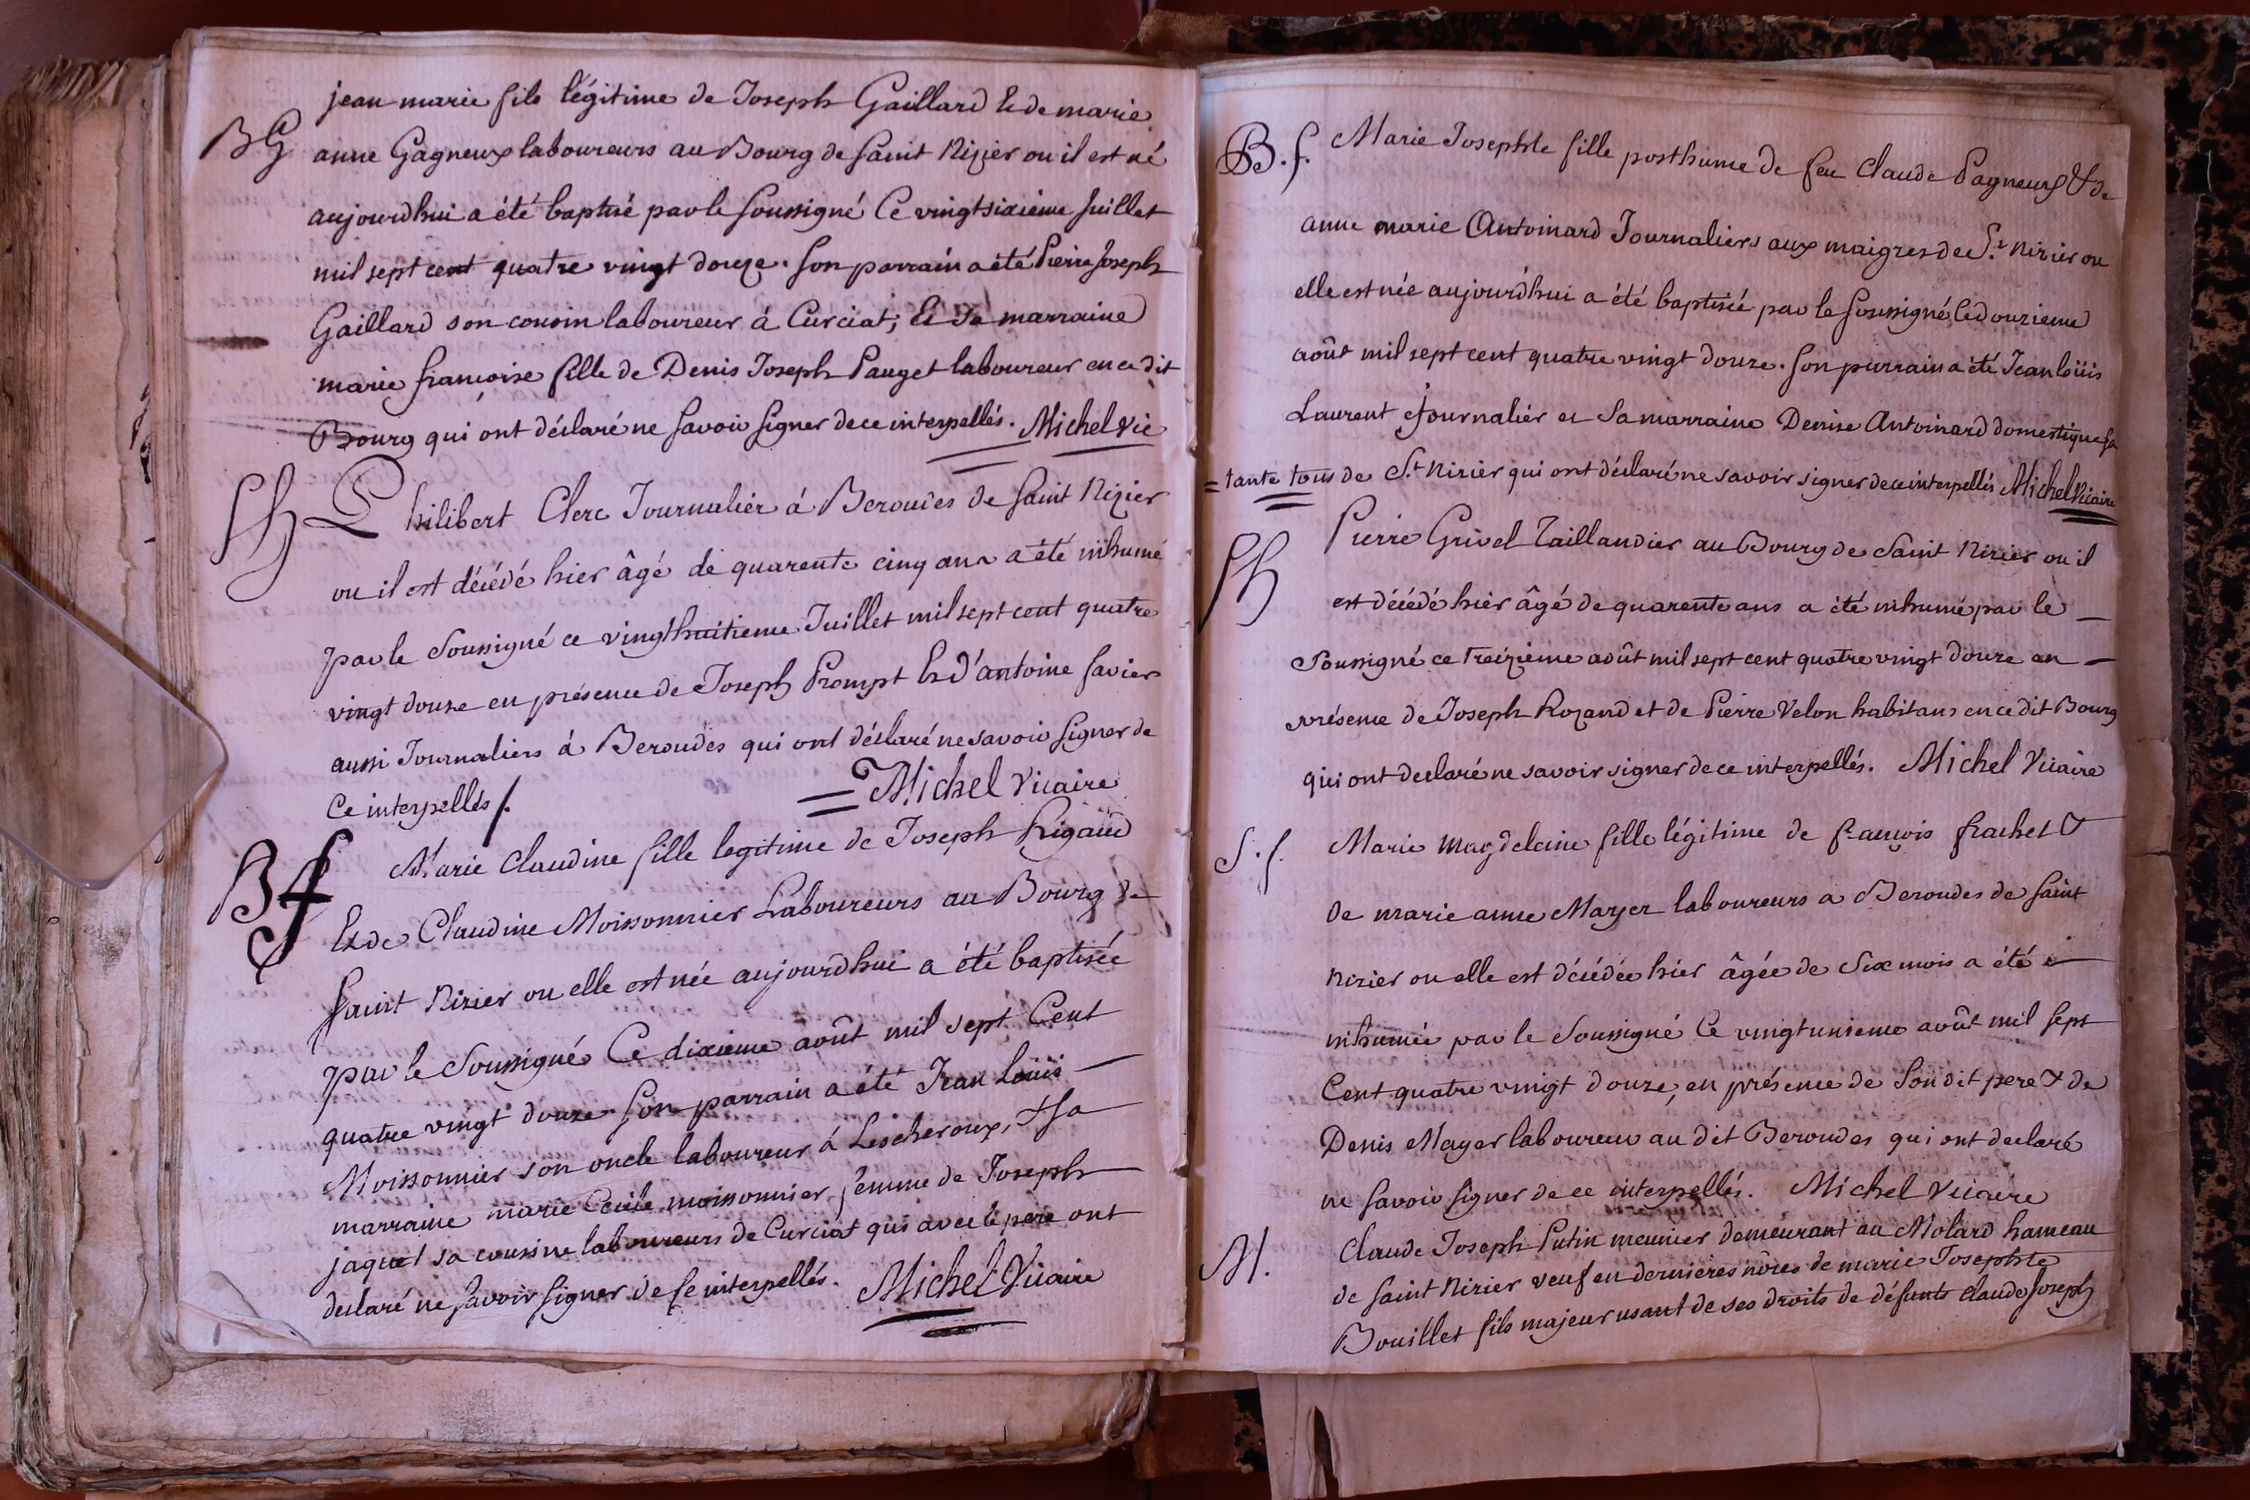 jean marie fils légitime de Joseph Gaillard & de marie
BG anne Gagneux laboureurs au Bourg de saint Nizier ou il est né
aujourdhui a été baptisé par le soussigné Ce vingtsixieme Juillet
mil sept cent quatre vingt douze. son parrain a été Pierre Joseph
Gaillard son cousin laboureur á Curciat, Et sa marraine
marie francoise fille de Denis Joseph Pauget laboureur en ce dit
Bourg qui ont déclaré ne savoir signer de ce interpellés. Michel Vic
Sh Philibert Clerc Journalier á Beroudes de saint Nizier
ou il est décédé hier âgé de quarente cinq ans a été inhumé
par le soussigné ce vingthuitieme Juillet mil sept cent quatre
vingt douze en présence de Joseph Prompt & d'antoine savier
aussi Journaliers á Beroudes qui ont déclaré ne savoir signer de
Ce interpellés /. Michel Vicaire
Bf Marie Claudine fille legitime de Joseph Rigaud
Et de Claudine Moissonnier Laboureurs au Bourg de
saint Nizier ou elle est née aujourdhui a été baptisée
par le soussigné Ce dixieme août mil sept Cent
quatre vingt douze son parrain a été Jean Loüis
Moissonnier son oncle laboureur á Lescheroux, & sa
marraine marie Cecile moissonnier femme de Joseph
jaquet sa cousine laboureurs de Curciat qui avec le pere ont
declaré ne savoir signer de se interpellés. Michel Vicaire
B.f. Marie Josephte fille posthume de feu Claude Pagneux & de
anne marie Antoinard Journaliers aux maigres de St. Nizier ou
elle est née aujourd'hui a été baptisée par le soussigné le douzieme
août mil sept cent quatre vingt douze. son parrain a été Jean loüis
Laurent Journalier et sa marraine Denise Antoinard domestique sa
= tante tous de St. Nizier qui ont déclaré ne savoir signer de ce interpellés Michel Vicaire
Sh Pierre Grivel Taillandier au Bourg de saint Nizier ou il
est décédé hier âgé de quarente ans a été inhumé par le
soussigné ce treizieme août mil sept cent quatre vingt douze en
présence de Joseph Rozand et de Pierre Velon habitans en ce dit Bourg
qui ont declaré ne savoir signer de ce interpellés. Michel Vicaire
S.f. Marie magdeleine fille légitime de françois frachet &
de marie anne Mayer laboureurs a Beroudes de saint
Nizier ou elle est décédée hier âgée de six mois a été i
inhumée par le soussigné Ce vingtunieme août mil sept
Cent quatre vingt douze, en présence de son dit pere & de
Denis Mayer laboureur au dit Beroudes qui ont declaré
ne savoir signer de ce interpellés. Michel Vicaire
M. Claude Joseph Putin meunier demeurant au Molard hameau
de saint Nizier veuf en dernieres nôces de marie Josephte
Bouillet fils majeur usant de ses droits de défunts Claude Joseph